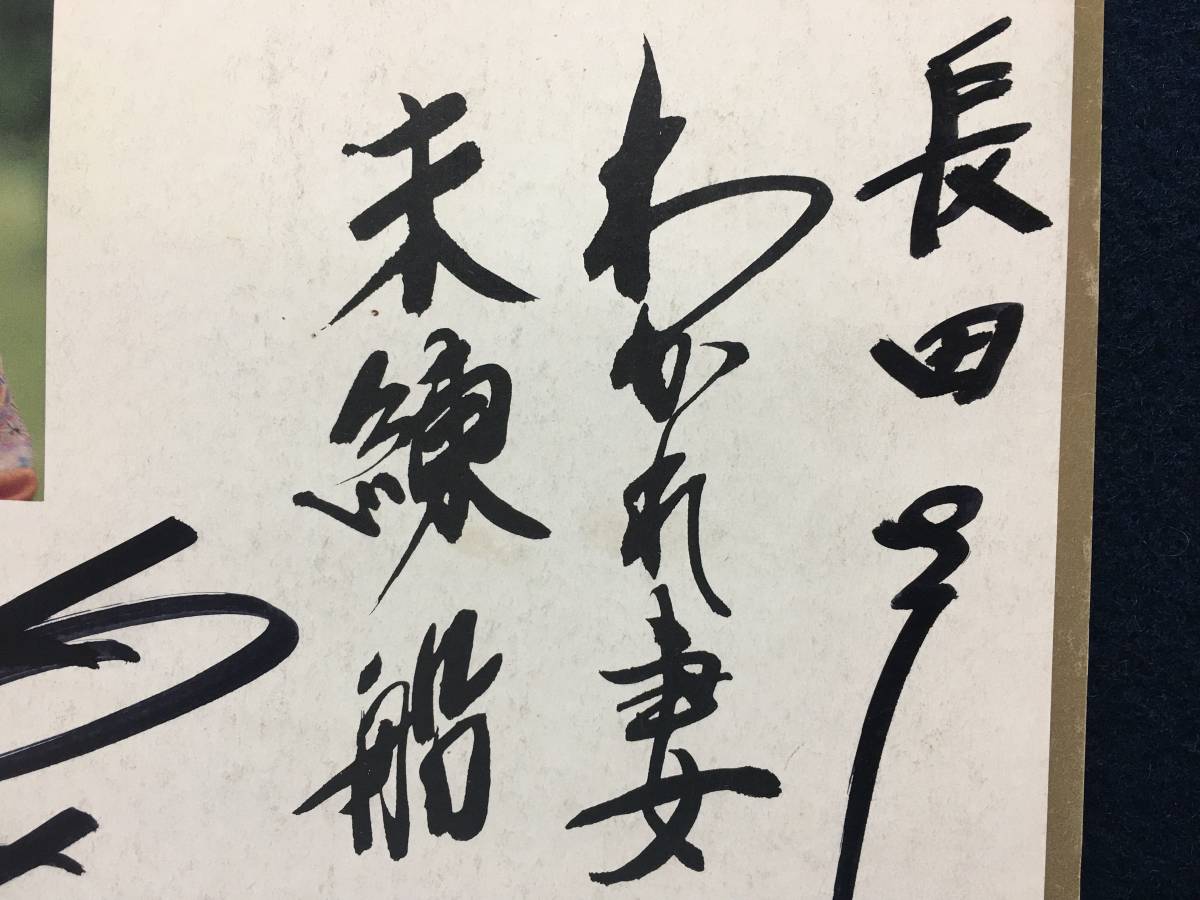 長田
わかれ妻
未練船